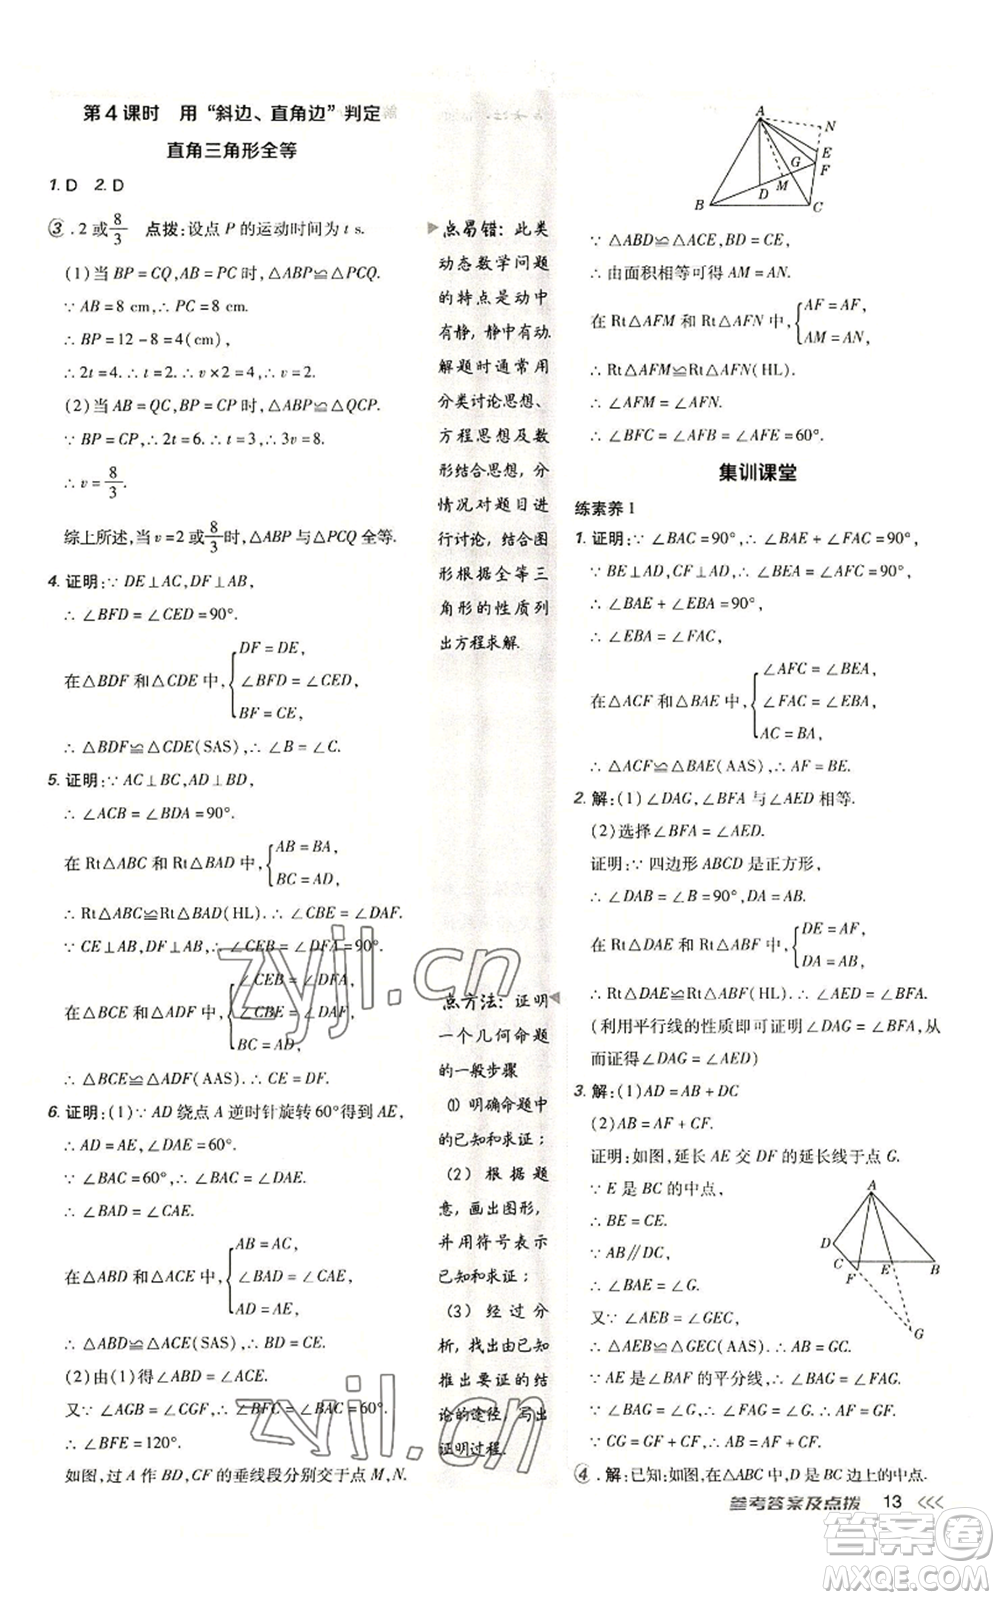 第4课时 用“斜边、直角边”判定
直角三角形全等
1. D 2. D
③. 2或8/3 点拨:设点 P 的运动时间为 t s.
(1)当 BP=CQ,AB=PC 时,△ABP≌△PCQ.
∵AB=8 cm,
∴BP=12-8=4(cm),
∴2t=4. ∴t=2. ∴v×2=4,v=2.
(2)当 AB=QC,BP=CP 时,△ABP≌△QCP.
∵BP=CP,∴2t=6. ∴t=3. ∴3v=8.
∴v=8/3.
综上所述,当 v=2 或8/3时,△ABP 与△PCQ 全等.
4. 证明:∵DE⊥AC,DF⊥AB,
∴∠BFD=∠CED=90°.
在△BDF 和△CDE 中,{DF=DE,
∠BFD=∠CED,
BF=CE,
∴△BDF≌△CDE(SAS). ∴∠B=∠C.
5. 证明:∵AC⊥BC,AD⊥BD,
∴∠ACB=∠BDA=90°.
在 Rt△ABC 和 Rt△BAD 中,{AB=BA,
BC=AD,
∴Rt△ABC≌Rt△BAD(HL). ∴∠CBE=∠DAF.
∵CE⊥AB,DF⊥AB,∴∠CEB=∠DFA=90°.
在△BCE 和△ADF 中,{∠CEB=∠DFA,
∠CBE=∠DAF,
BC=AD,
∴△BCE≌△ADF(AAS). ∴CE=DF.
6. 证明:(1)∵AD 绕点 A 逆时针旋转 60°得到 AE,
∴AD=AE,∠DAE=60°.
∵∠BAC=60°,∴∠BAC=∠DAE.
∴∠BAD=∠CAE.
在△ABD 和△ACE 中,{AB=AC,
∠BAD=∠CAE,
AD=AE,
∴△ABD≌△ACE(SAS). ∴BD=CE.
(2)由(1)得∠ABD=∠ACE.
又∵∠AGB=∠CGF,∴∠BFC=∠BAC=60°.
∴∠BFE=120°.
如图,过 A 作 BD,CF 的垂线段分别交于点 M,N.
点易错:此类
动态数学问题
的特点是动中
有静,静中有动.
解题时通常用
分类讨论思想、
方程思想及数
形结合思想,分
情况对题目进
行讨论,结合图
形根据全等三
角形的性质列
出方程求解.
点方法:证明
一个几何命题
的一般步骤
(1)明确命题中
的已知和求证;
(2)根据题
意,画出图形,
并用符号表示
已知和求证;
(3)经过分
析,找出由已知
推出要证的结
论的途径,写出
证明过程.
A
N
E
G
F
D
M
B
C
∵△ABD≌△ACE,BD=CE,
∴由面积相等可得 AM=AN.
在 Rt△AFM 和 Rt△AFN 中,{AF=AF,
AM=AN,
∴Rt△AFM≌Rt△AFN(HL).
∴∠AFM=∠AFN.
∴∠BFC=∠AFB=∠AFE=60°.
集训课堂
练素养 1
1. 证明:∵∠BAC=90°,∴∠BAE+∠FAC=90°,
∵BE⊥AD,CF⊥AD,∴∠BEA=∠AFC=90°,
∴∠BAE+∠EBA=90°,
∴∠EBA=∠FAC,
在△ACF 和△BAE 中,{∠AFC=∠BEA,
∠FAC=∠EBA,
AC=BA,
∴△ACF≌△BAE(AAS),∴AF=BE.
2. 解:(1)∠DAG,∠BFA 与∠AED 相等.
(2)选择∠BFA=∠AED.
证明:∵四边形 ABCD 是正方形,
∴∠DAB=∠B=90°,DA=AB.
在 Rt△DAE 和 Rt△ABF 中,{DE=AF,
DA=AB,
∴Rt△DAE≌Rt△ABF(HL). ∴∠AED=∠BFA.
(利用平行线的性质即可证明∠DAG=∠BFA,从
而证得∠DAG=∠AED)
3. 解:(1)AD=AB+DC
(2)AB=AF+CF.
证明:如图,延长 AE 交 DF 的延长线于点 G.
∵E 是 BC 的中点,
∴BE=CE.
∵AB∥DC,
∴∠BAE=∠G.
又∵∠AEB=∠GEC,
∴△AEB≌△GEC(AAS). ∴AB=GC.
∵AE 是∠BAF 的平分线,∴∠BAG=∠FAG.
∵∠BAG=∠G,∴∠FAG=∠G. ∴FA=FG.
∵CG=GF+CF,∴AB=AF+CF.
A
D
C
F
E
B
G
④. 解:已知:如图,在△ABC 中,D 是 BC 边上的中点.
参考答案及点拨 13
zyjl.cn
zyjl.cn
答案卷
MXQE.COM